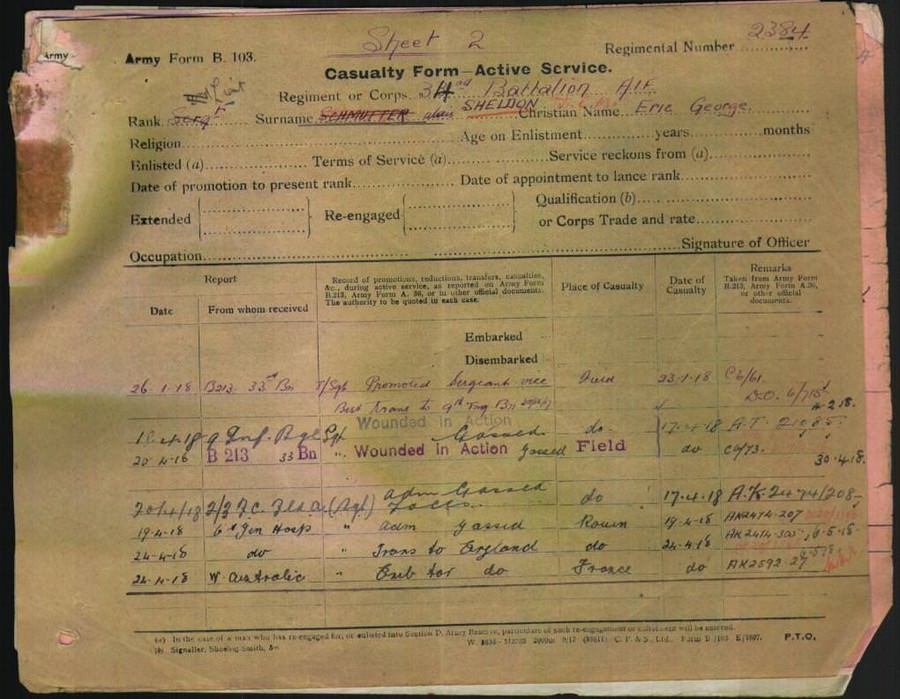 Army
Sheet 2
Army Form B. 103.
Regimental Number 2384
Casualty Form—Active Service.
Regiment or Corps Battalion A.I.F.
Rank Sergt Surname SCHMUTTER alias SHELDON Christian Name Eric George
Religion Age on Enlistment years months
Enlisted (a) Terms of Service (a) Service reckons from (a)
Date of promotion to present rank Date of appointment to lance rank
Extended Re-engaged Qualification (b)
or Corps Trade and rate
Occupation Signature of Officer
Report
Date From whom received
Record of promotions, reductions, transfers, casualties, &c., during active service, as reported on Army Form B.213, Army Form A. 36, or in other official documents. The authority to be quoted in each case.
Place of Casualty
Date of Casualty
Remarks
Taken from Army Form B.213, Army Form A.36, or other official documents.
Embarked
Disembarked
26-1-18 B213 33rd Bn T/Sgt Promoted Sergeant vice Field 23-1-18 C6/61
Trans to 9th Trg Bn D.O.
Wounded in Action
Sgt Gassed do 17-4-18
20-4-18 B 213 33 Bn " Wounded in Action Gassed Field do C6/73
30.4.18.
20/4/18 (Sgt) adm Gassed do 17-4-18 A.K. 2474/208
19-4-18 6th Gen Hosp " adm gassed Rouen 19-4-18 AK2474-207
24-4-18 do " Trans to England do 24-4-18
24-4-18 W. Australia " Emb for do France do AK2592-27
(a) In the case of a man who has re-engaged for, or enlisted into Section D, Army Reserve, particulars of such re-engagement or enlistment will be entered.
(b) Signaller, Shoeing Smith, &c
P.T.O.